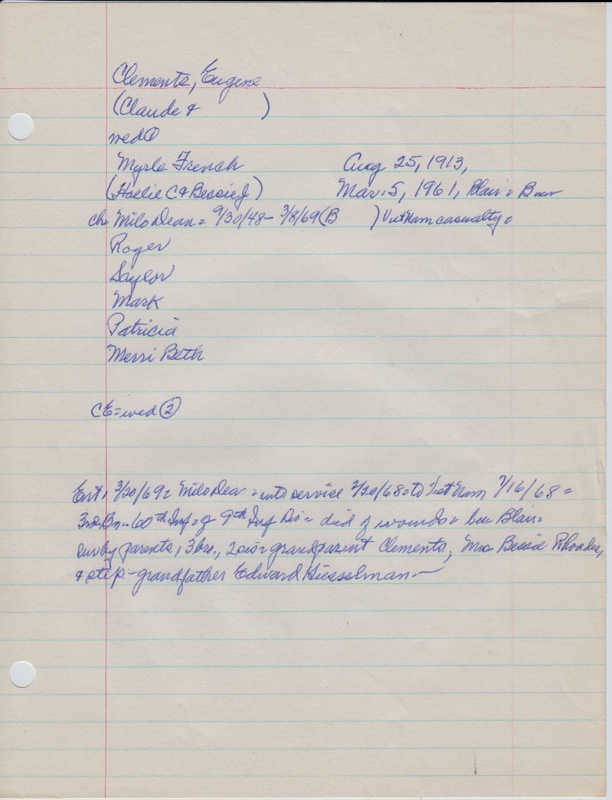 Clements, Eugene
(Claude & )
wed ①
Myrle French Aug 25, 1913,
(Hoelie C & Bessie J) Mar. 5, 1961, Blair = B
ch. Milo Dean = 9/30/48 - 3/8/69 (B ) Viet Nam casualty =
Roger
Saylor
Mark
Patricia
Merri Beth
CE = wed ②
Ent. 3/20/69 = Milo Dean = into service 2/20/68 = to Viet Nam 7/16/68 =
3rd Bn. 60th Inf = of 9th Inf Div = died of wounds = bur Blair.
surv by parents, 3 bro., 2 sis = grandparent Clements, Mrs Bessie Rhoades,
& step-grandfather Edward Hiesselman -